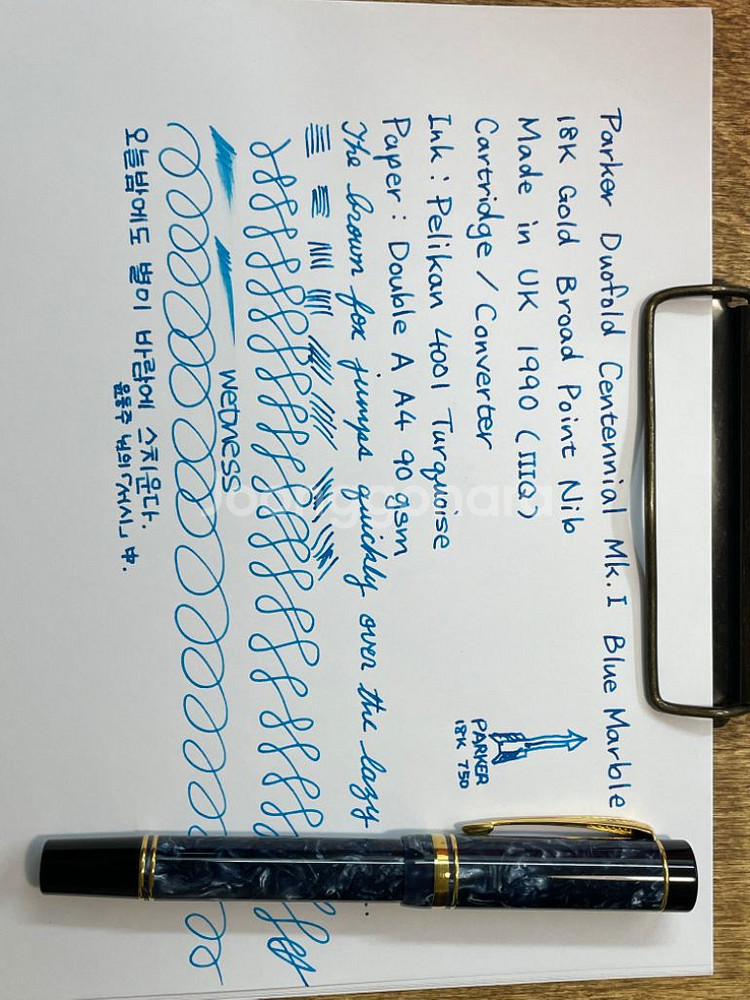 Parker Duofold Centennial Mk.I Blue Marble
18K Gold Broad Point Nib
Made in UK 1990 (IIIQ)
Cartridge / Converter
Ink : Pelikan 4001 Turquoise
Paper : Double A A4 90 gsm
PARKER
18K 750
The brown fox jumps quickly over the lazy
wetness
오늘밤에도 별이 바람에 스치운다.
윤동주 님의 「서시」 中.
Joonggonara